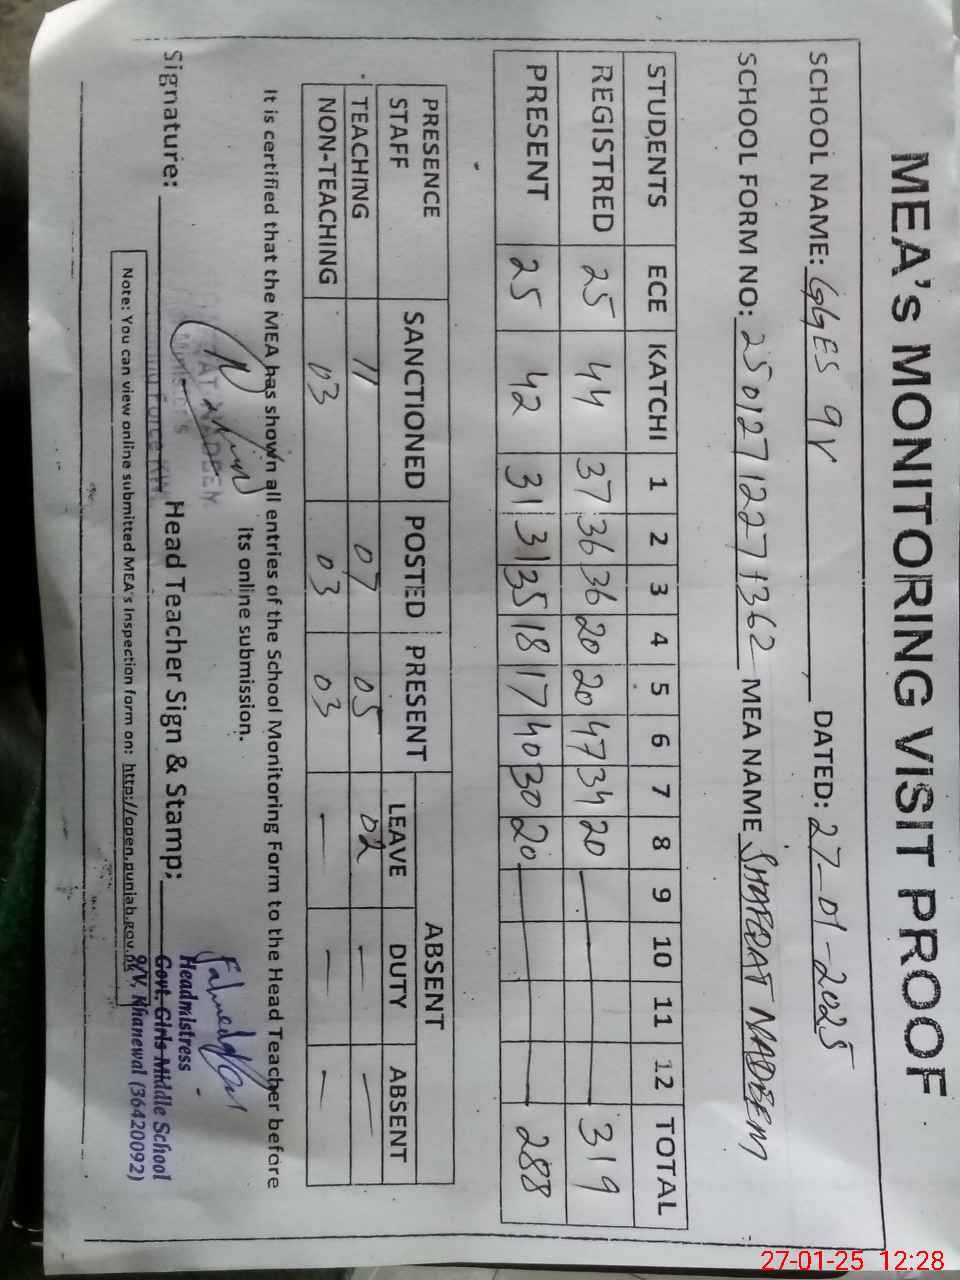 MEA's MONITORING VISIT PROOF
SCHOOL NAME: GGES 9V DATED: 27-01-2025
SCHOOL FORM NO: 250127122271362 MEA NAME SHAFQAT NADEEM
STUDENTS ECE KATCHI 1 2 3 4 5 6 7 8 9 10 11 12 TOTAL
REGISTRED 25 44 37 36 36 20 20 47 34 20 319
PRESENT 25 42 31 31 35 18 17 40 30 20 288
PRESENCE SANCTIONED POSTED PRESENT ABSENT
STAFF LEAVE DUTY ABSENT
TEACHING 11 07 05 02 — —
NON-TEACHING 03 03 03 — — —
It is certified that the MEA has shown all entries of the School Monitoring Form to the Head Teacher before
its online submission.
Signature: Head Teacher Sign & Stamp:
NADEEM
Headmistress
Govt. Girls Middle School
9/V, Khanewal (36420092)
Note: You can view online submitted MEA's Inspection form on: http://open.punjab.gov.pk
27-01-25 12:28